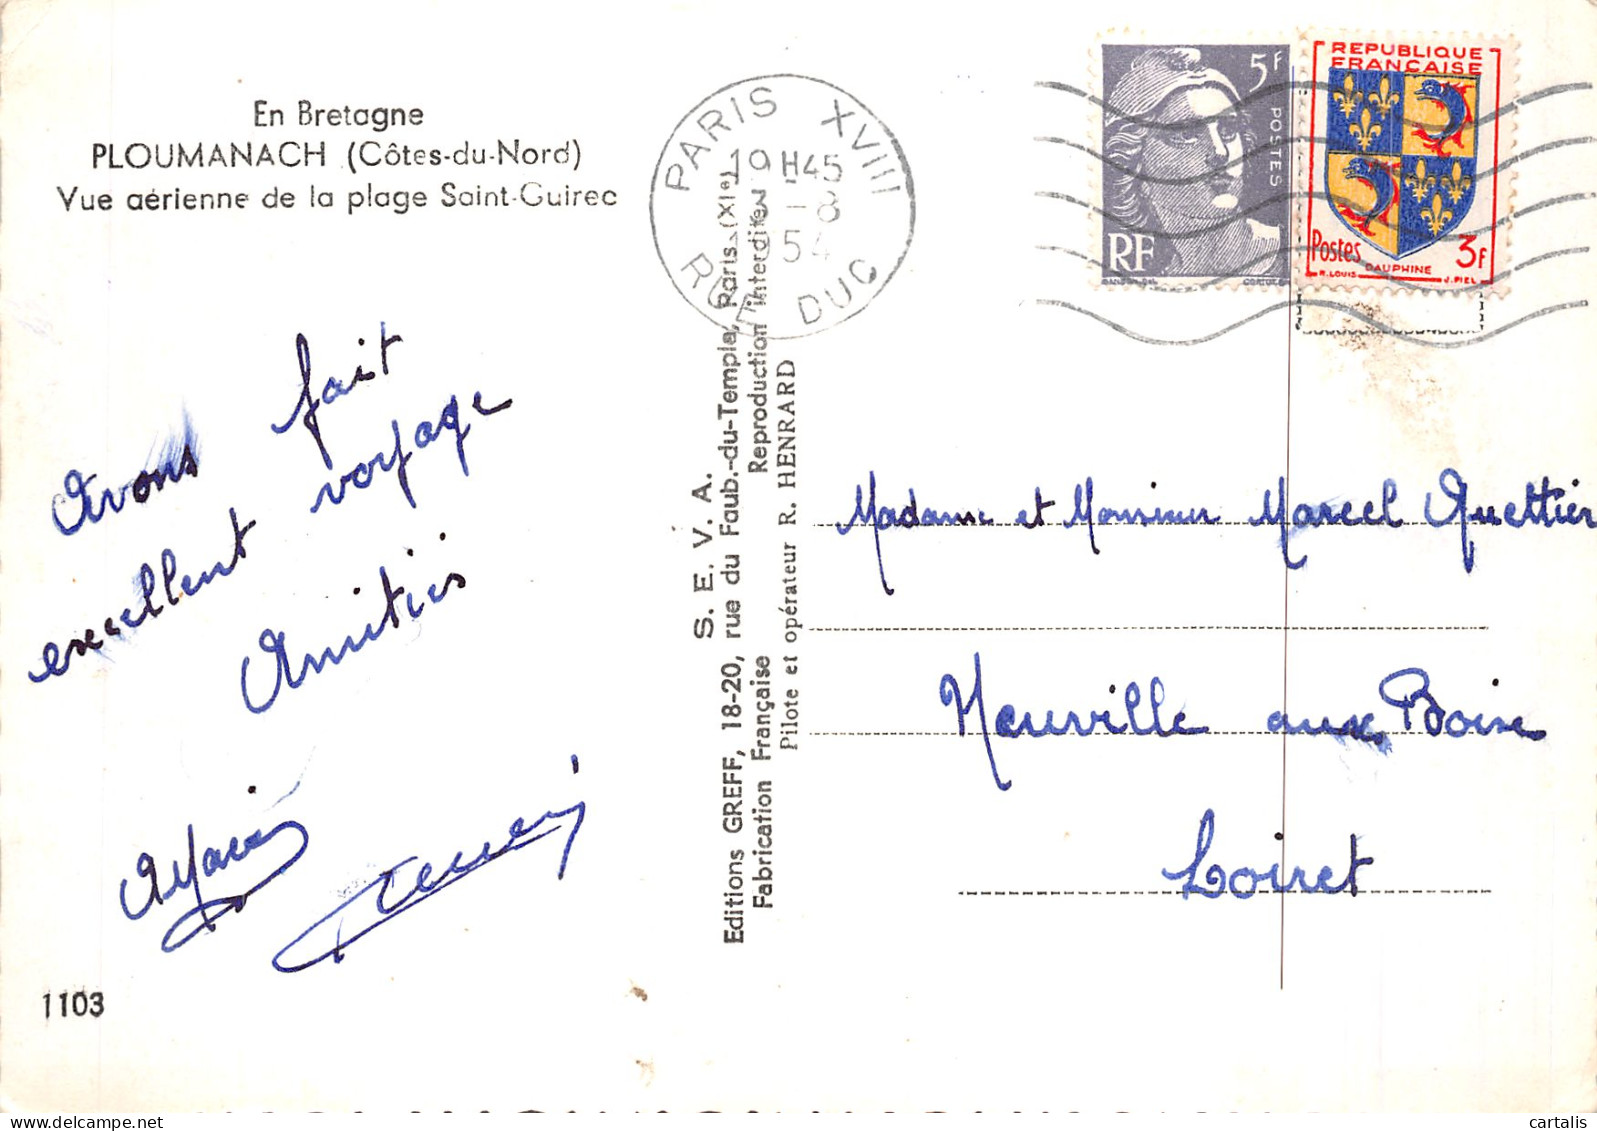 En Bretagne
PLOUMANACH (Côtes-du-Nord)
Vue aérienne de la plage Saint-Guirec
Avons fait
excellent voyage
Amitiés
1103
S. E. V. A.
Editions GREFF, 18-20, rue du Faub.-du-Temple, Paris (XIe)
Fabrication Française Reproduction interdite
Pilote et opérateur R. HENRARD
PARIS XVIII
19H45
-8
54
RUE DUC
5F
POSTES
RF
REPUBLIQUE
FRANÇAISE
Postes 3F
DAUPHINE
R. LOUIS J. PIEL
Madame et Monsieur Marcel Quettier
Neuville aux Bois
Loiret
cartalis